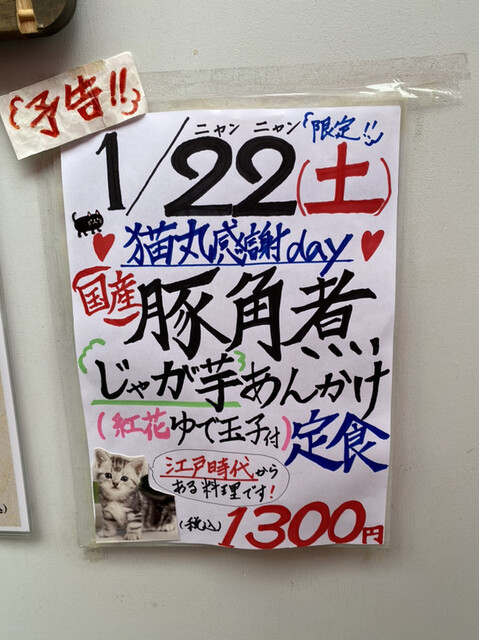 予告!!
ニャン ニャン
1/22(土)
限定!!
猫丸感謝day
国産
豚角煮
じゃが芋あんかけ
(紅花ゆで玉子付)定食
江戸時代から
ある料理です!
(税込)1300円